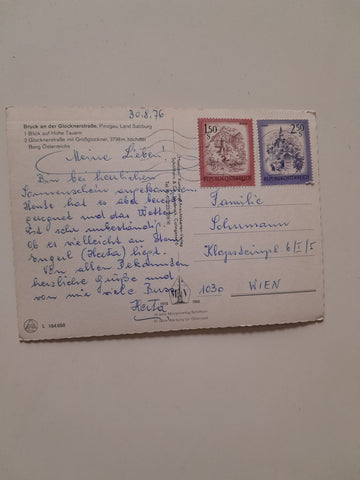 30.8.76
Bruck an der Glocknerstraße, Pinzgau, Land Salzburg
1 Blick auf Hohe Tauern
2 Glocknerstraße mit Großglockner, 3798m, höchster
Berg Österreichs
1.50
S
REPUBLIK ÖSTERREICH
2.50
S
REPUBLIK ÖSTERREICH
Meine Lieben!
Bin bei herrlichem
Sonnenschein angekommen.
Heute hat es aber
geregnet und das Wetter
ist sehr unbeständig.
Ob es vielleicht an
(Herta) liegt.
Von allen Bekannten
herzliche Grüße und
von mir viele Bussi
Herta
Familie
Schumann
6/I/5
1030 WIEN
L 164950